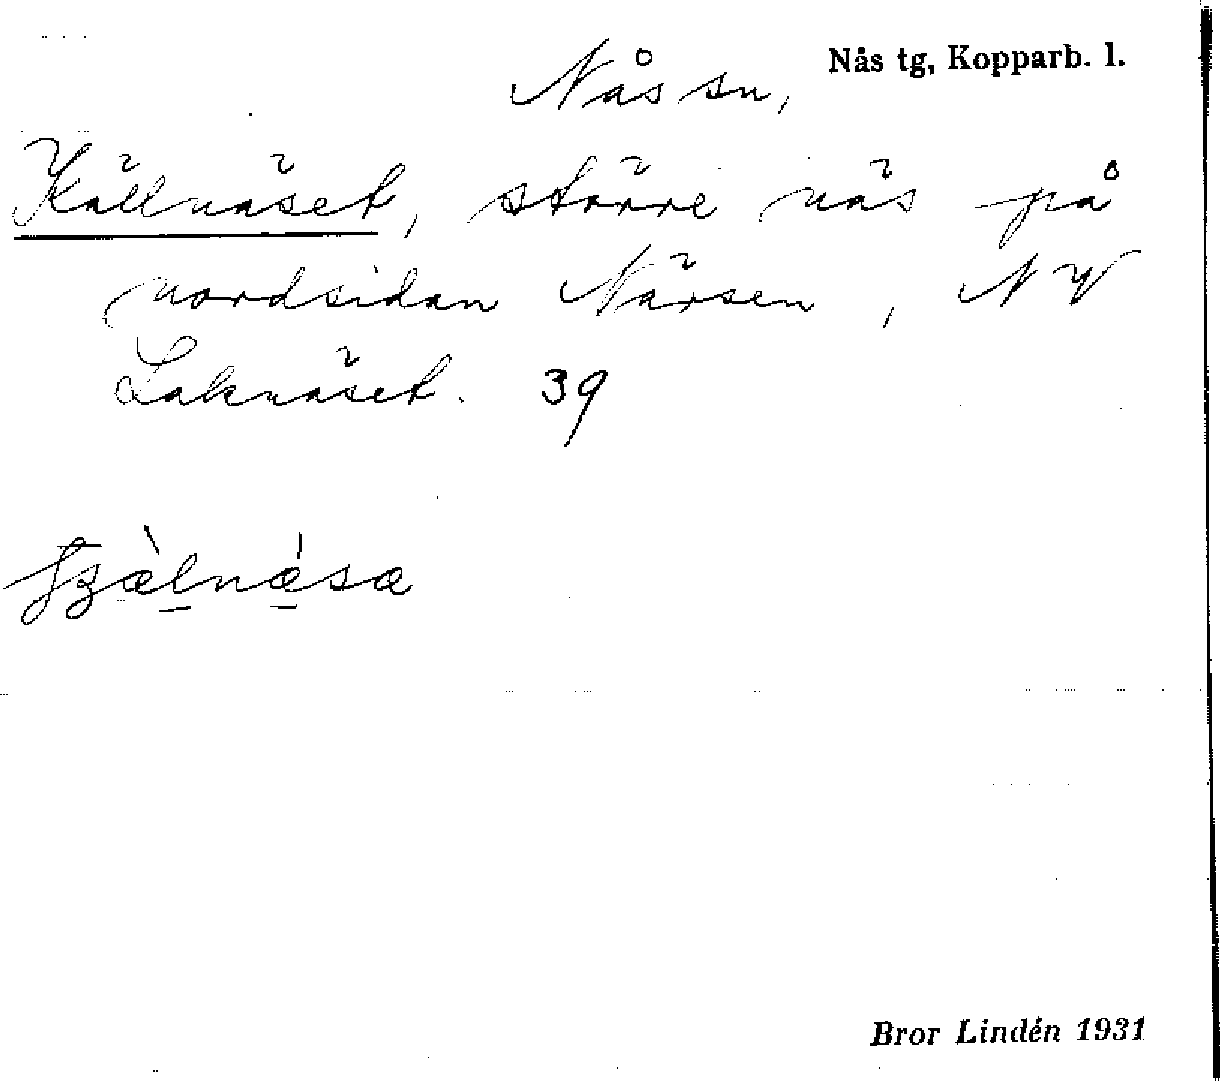 Nås tg, Kopparb. l.
Nås sn,
Källnäset, större näs på
nordsidan Närsen, NV
Laknäset. 39
Bror Lindén 1931